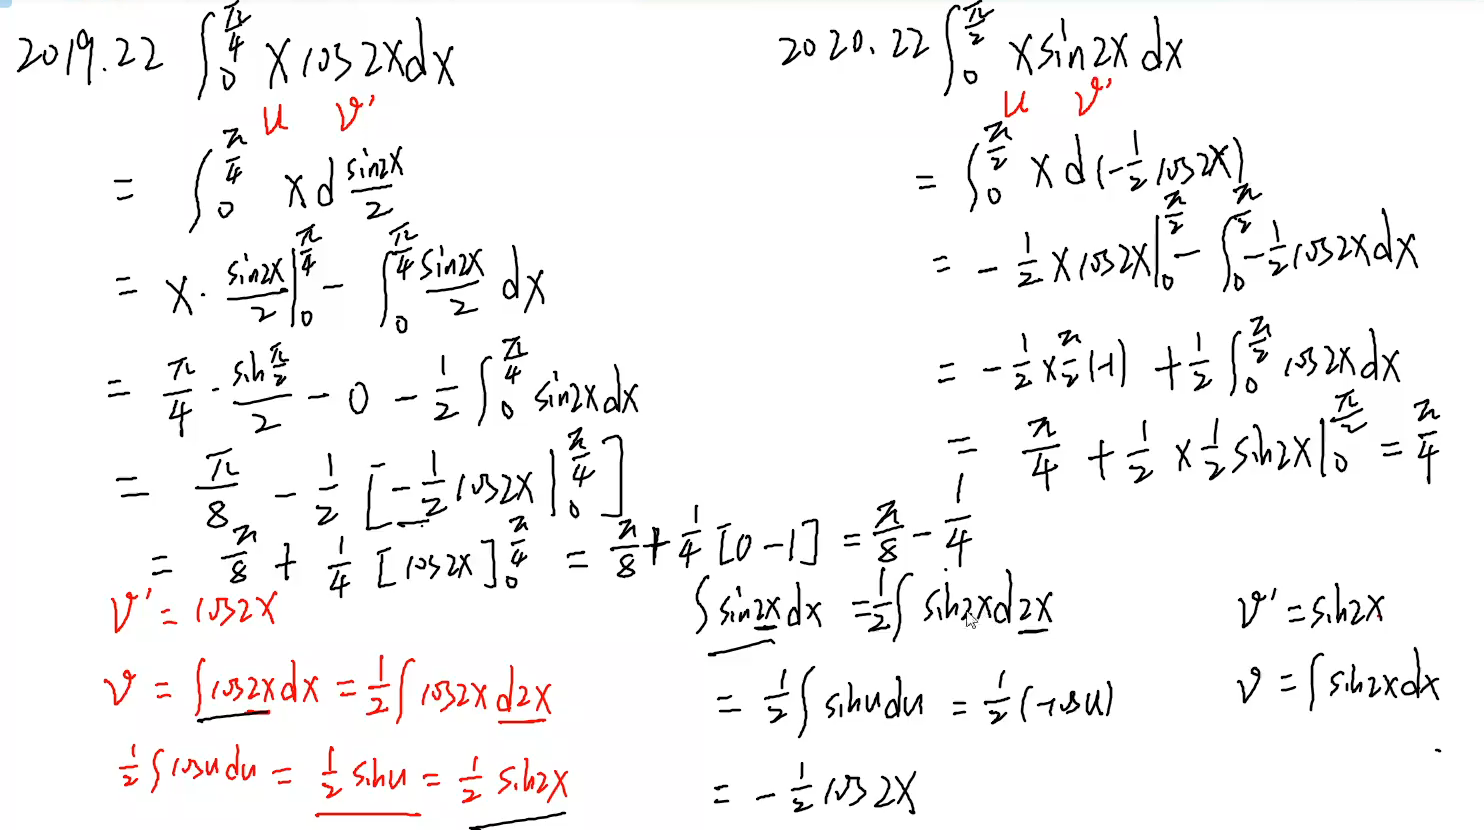 2019.22 ∫₀^{π/4} x cos2x dx
u v'
= ∫₀^{π/4} x d sin2x/2
= x · sin2x/2 |₀^{π/4} - ∫₀^{π/4} sin2x/2 dx
= π/4 · sin(π/2)/2 - 0 - 1/2 ∫₀^{π/4} sin2x dx
= π/8 - 1/2 [-1/2 cos2x |₀^{π/4}]
= π/8 + 1/4 [cos2x]₀^{π/4} = π/8 + 1/4 [0-1] = π/8 - 1/4
v' = cos2x
v = ∫cos2x dx = 1/2 ∫ cos2x d2x
1/2 ∫cosu du = 1/2 sinu = 1/2 sin2x
2020.22 ∫₀^{π/2} x sin2x dx
u v'
= ∫₀^{π/2} x d(-1/2 cos2x)
= -1/2 x cos2x |₀^{π/2} - ∫₀^{π/2} -1/2 cos2x dx
= -1/2 × π/2 (-1) + 1/2 ∫₀^{π/2} cos2x dx
= π/4 + 1/2 × 1/2 sin2x |₀^{π/2} = π/4
∫sin2x dx = 1/2 ∫ sin2x d2x
= 1/2 ∫ sinu du = 1/2 (-cosu)
= -1/2 cos2x
v' = sin2x
v = ∫ sin2x dx